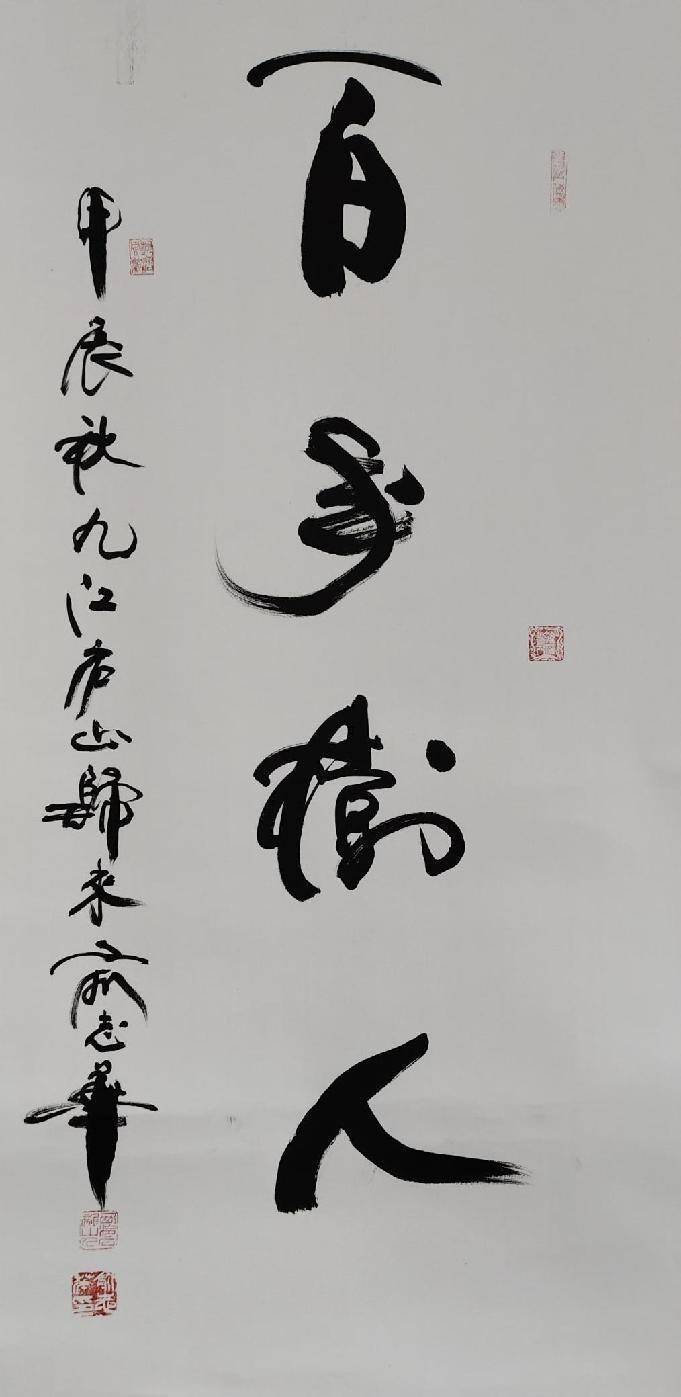 百年樹人
甲辰秋九江庐山歸來俞志華